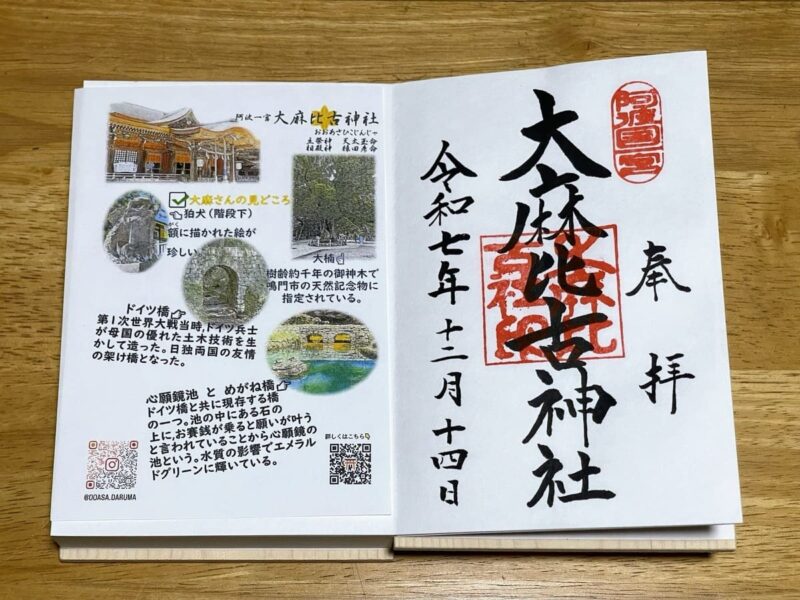 阿波一宮 大麻比古神社
おおあさひこじんじゃ
主祭神 天太玉命
相殿神 猿田彦命
大麻さんの見どころ
狛犬(階段下)
がく
額に描かれた絵が
珍しい
大楠
樹齢約千年の御神木で
鳴門市の天然記念物に
指定されている。
ドイツ橋
第1次世界大戦当時、ドイツ兵士
が母国の優れた土木技術を生
かして造った。日独両国の友情
の架け橋となった。
心願鏡池 と めがね橋
ドイツ橋と共に現存する橋
の一つ。池の中にある石の
上に、お賽銭が乗ると願いが叶う
と言われていることから心願鏡の
池という。水質の影響でエメラル
ドグリーンに輝いている。
詳しくはこちら
@OOASA.DARUMA
阿波國一宮
奉拝
大麻比古神社
令和七年十二月十四日